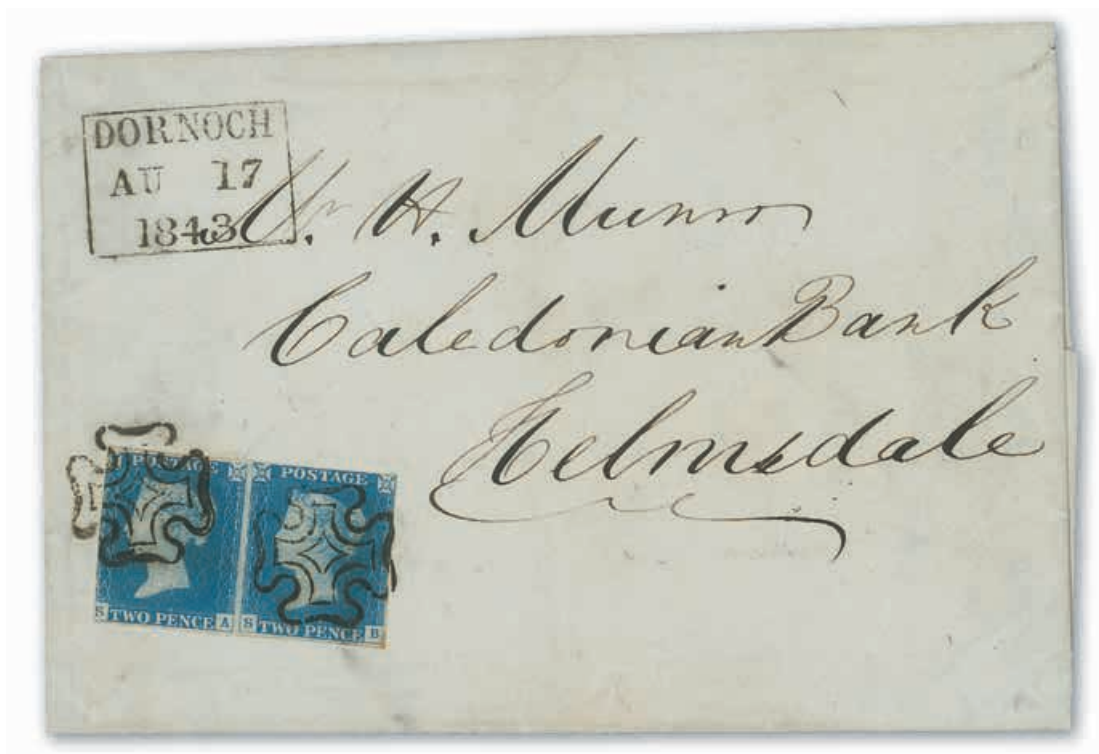 DORNOCH
AU 17
1843
Mr. H. Munro
Caledonian Bank
Helmsdale
POSTAGE POSTAGE
S TWO PENCE A S TWO PENCE B